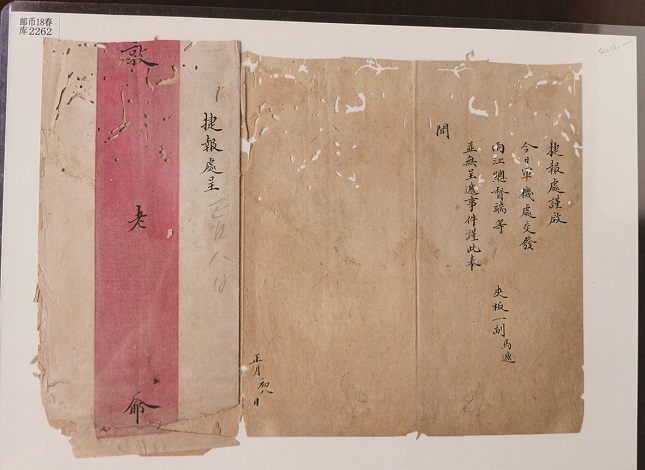 邮币18春
库2262
敦
老
爺
捷報處呈
捷報處謹啟
今日軍機處交發
兩江總督端等 夾板一副 馬遞
並無呈遞事件謹此奉
聞
正月初八日